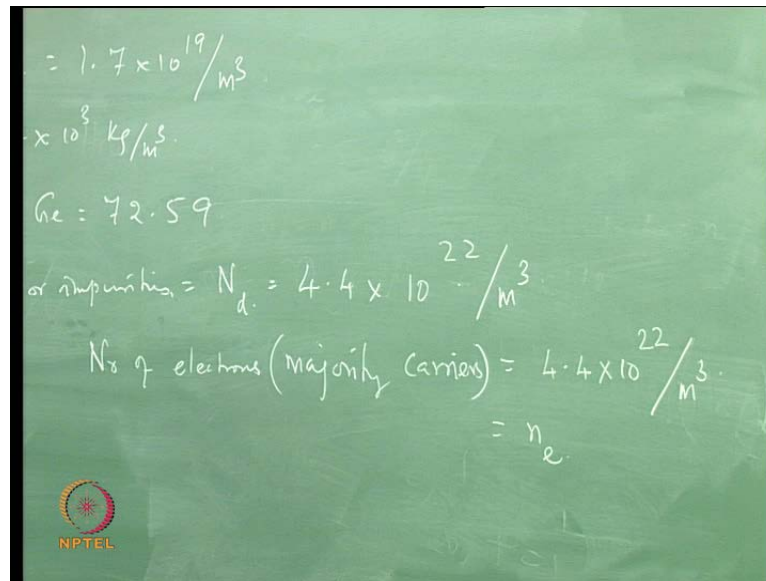 = 1.7 × 10¹⁹/m³
× 10³ kg/m³.
Ge = 72.59
or impurities = N_d. = 4.4 × 10²²/m³
Nr of electrons (majority carriers) = 4.4 × 10²²/m³.
= n_e.
NPTEL